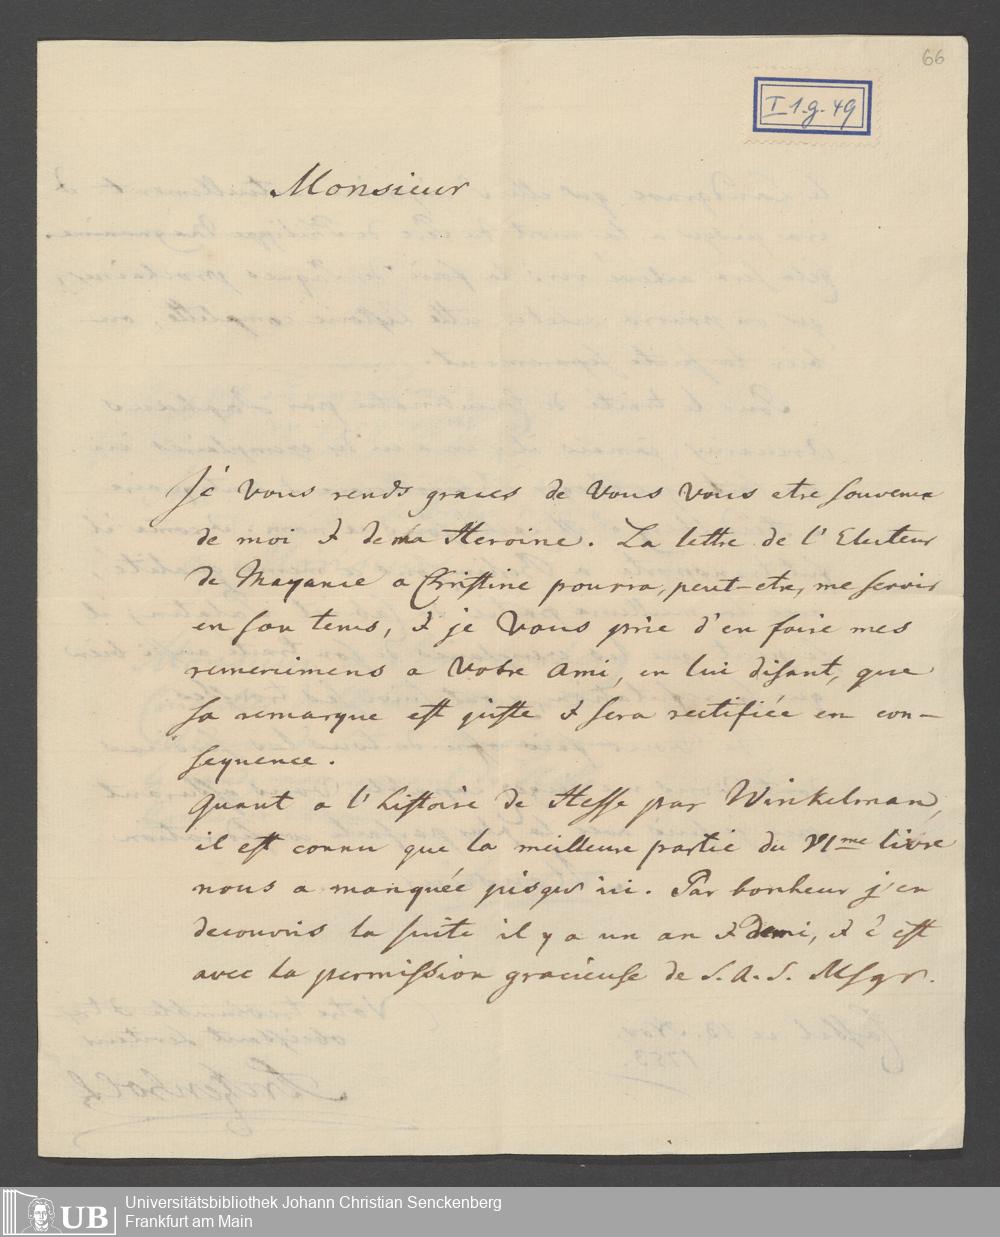 66
I 1.g.49
Monsieur
Je vous rends graces de vous vous etre souvenu
de moi & de ma Heroine. La lettre de l'Electeur
de Mayance a Christine pourra, peut-etre, me servir
en son tems, & je vous prie d'en faire mes
remercimens a votre ami, en lui disant, que
sa remarque est juste & sera rectifiée en con-
sequence.
Quant a l'histoire de Hesse par Winkelman,
il est connu que la meilleure partie du VIme livre
nous a manquée jusqu'ici. Par bonheur j'en
decouvris la suite il y a un an & demi, & c'est
avec la permission gracieuse de S. A. S. Msgr.
UB
Universitätsbibliothek Johann Christian Senckenberg
Frankfurt am Main